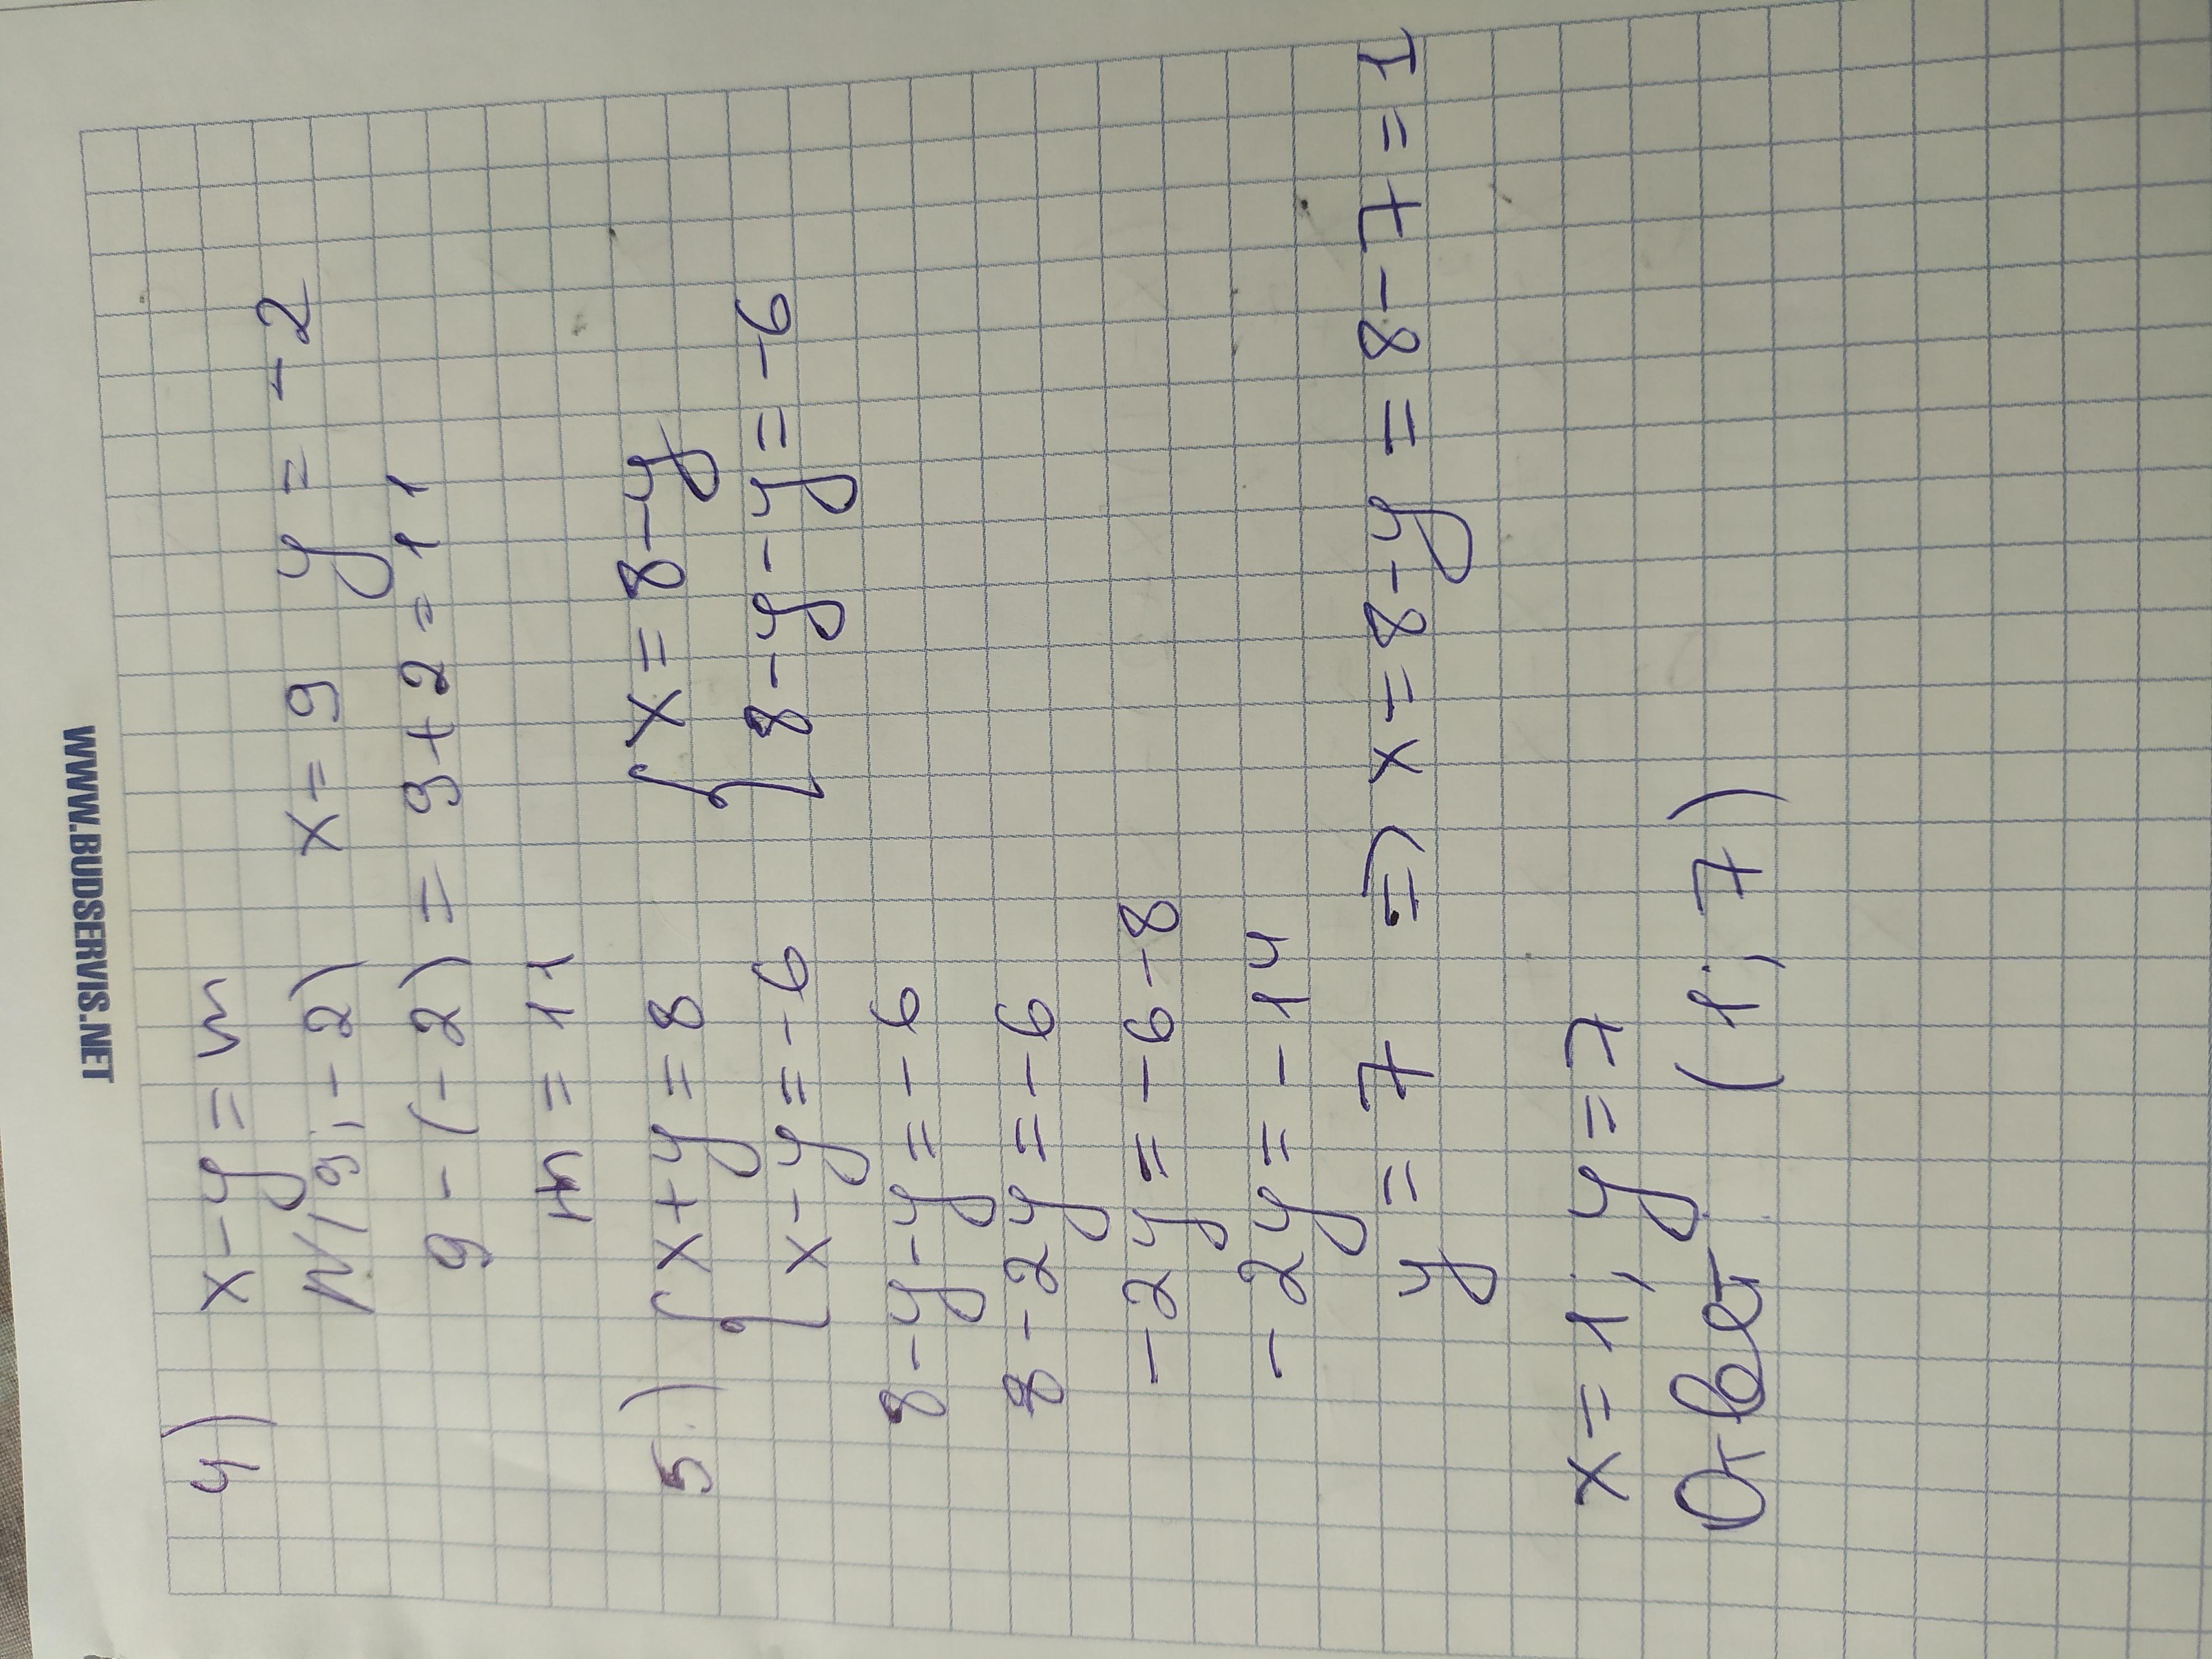 WWW.BUDSERVIS.NET
4) x-y=m
N(9;-2) x=9 y=-2
9-(-2)=9+2=11
m=11
5.) { x+y=8 { x=8-y
x-y=-6 8-y-y=-6
8-y-y=-6
8-2y=-6
-2y=-6-8
-2y=-14
y=7 => x=8-y=8-7=1
x=1, y=7
Ответ (1; 7)